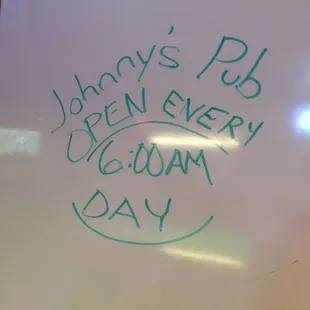 Johnny's Pub
OPEN EVERY
6:00AM
DAY